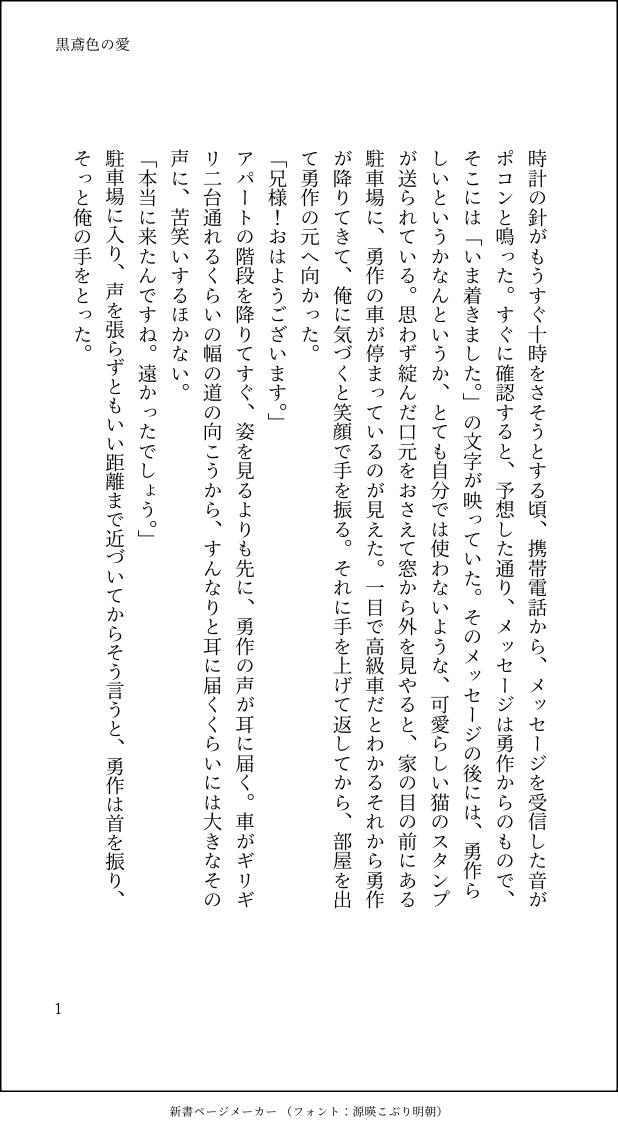 黒鳶色の愛
時計の針がもうすぐ十時をさそうとする頃、携帯電話から、メッセージを受信した音が
ポコンと鳴った。すぐに確認すると、予想した通り、メッセージは勇作からのもので、
そこには「いま着きました。」の文字が映っていた。そのメッセージの後には、勇作ら
しいというかなんというか、とても自分では使わないような、可愛らしい猫のスタンプ
が送られている。思わず綻んだ口元をおさえて窓から外を見やると、家の目の前にある
駐車場に、勇作の車が停まっているのが見えた。一目で高級車だとわかるそれから勇作
が降りてきて、俺に気づくと笑顔で手を振る。それに手を上げて返してから、部屋を出
て勇作の元へ向かった。
「兄様！おはようございます。」
アパートの階段を降りてすぐ、姿を見るよりも先に、勇作の声が耳に届く。車がギリギ
リ二台通れるくらいの幅の道の向こうから、すんなりと耳に届くくらいには大きなその
声に、苦笑いするほかない。
「本当に来たんですね。遠かったでしょう。」
駐車場に入り、声を張らずともいい距離まで近づいてからそう言うと、勇作は首を振り、
そっと俺の手をとった。
1
新書ページメーカー（フォント：源暎こぶり明朝）